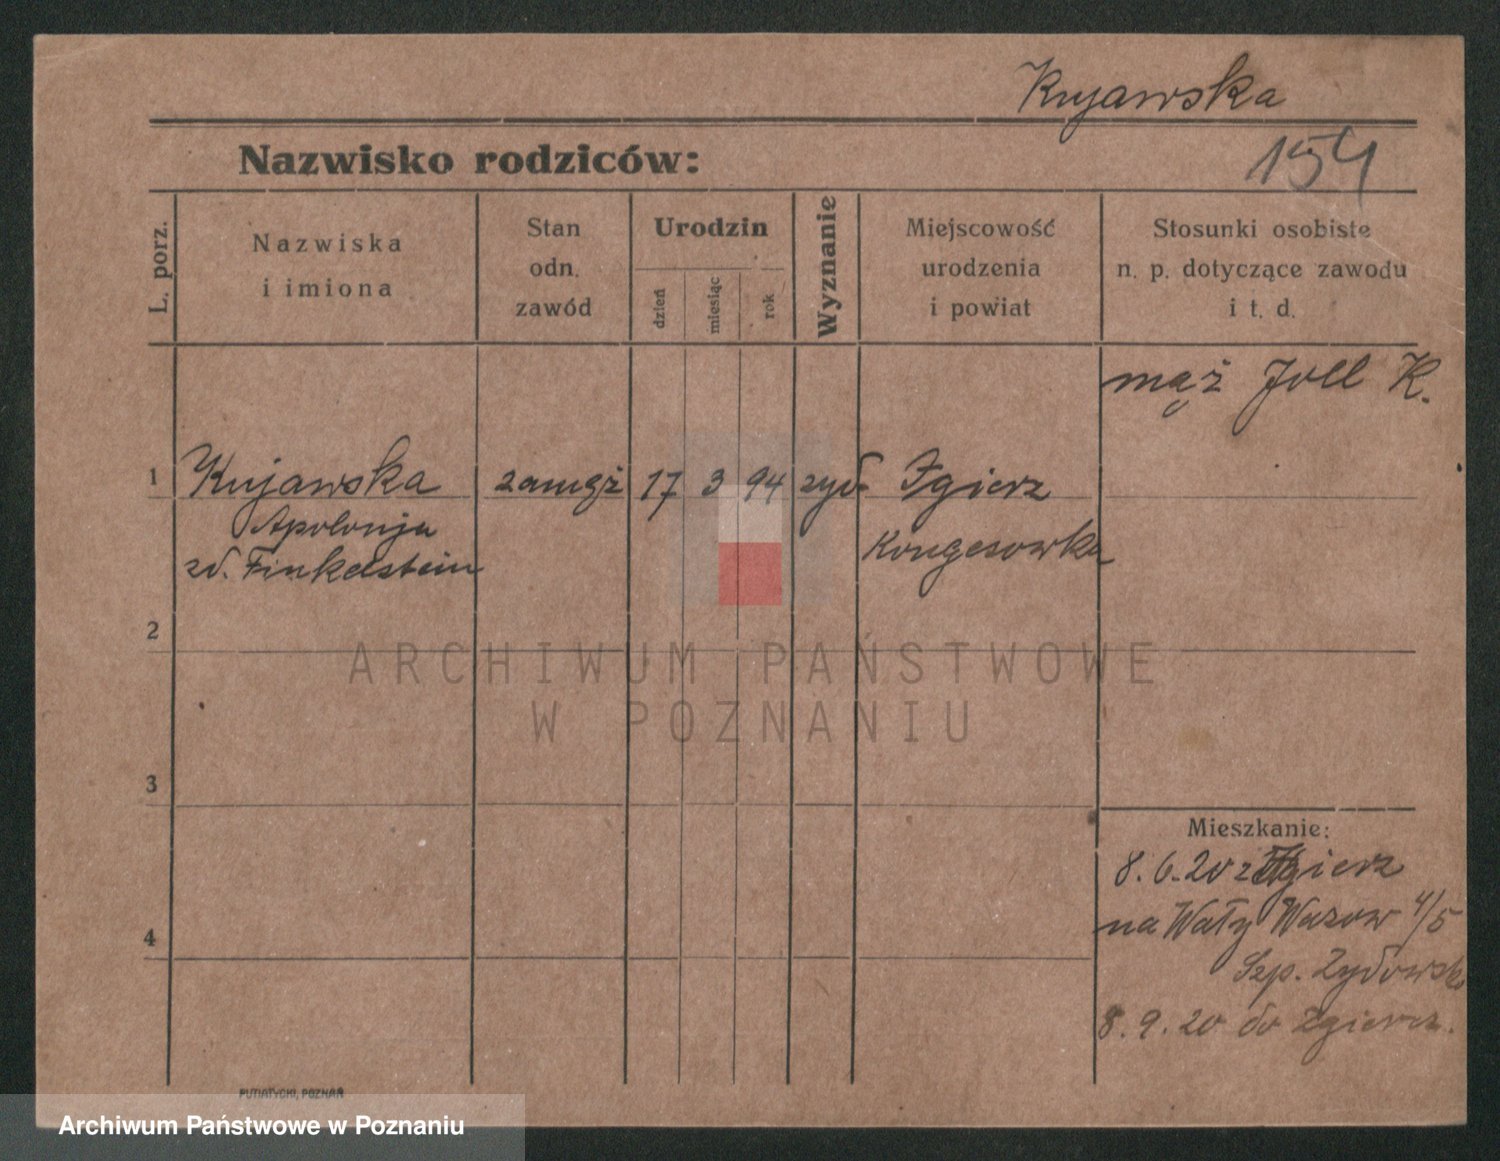 Kujawska
Nazwisko rodziców:
154
L. porz.
Nazwiska
i imiona
Stan
odn.
zawód
Urodzin
dzień
miesiąc
rok
Wyznanie
Miejscowość
urodzenia
i powiat
Stosunki osobiste
n. p. dotyczące zawodu
i t. d.
mąż Joll K.
1 Kujawska zamęż 17 3 94 żyd. Zgierz
Apolonja
zd. Finkelstein
Kongesowka
2
ARCHIWUM PAŃSTWOWE
W POZNANIU
3
Mieszkanie:
8.6.20 z Zgierz
na Wały Wazow 4/5
4
Szp. Żydowski
8.9.20 do Zgierz.
PUTIATYCKI, POZNAŃ
Archiwum Państwowe w Poznaniu